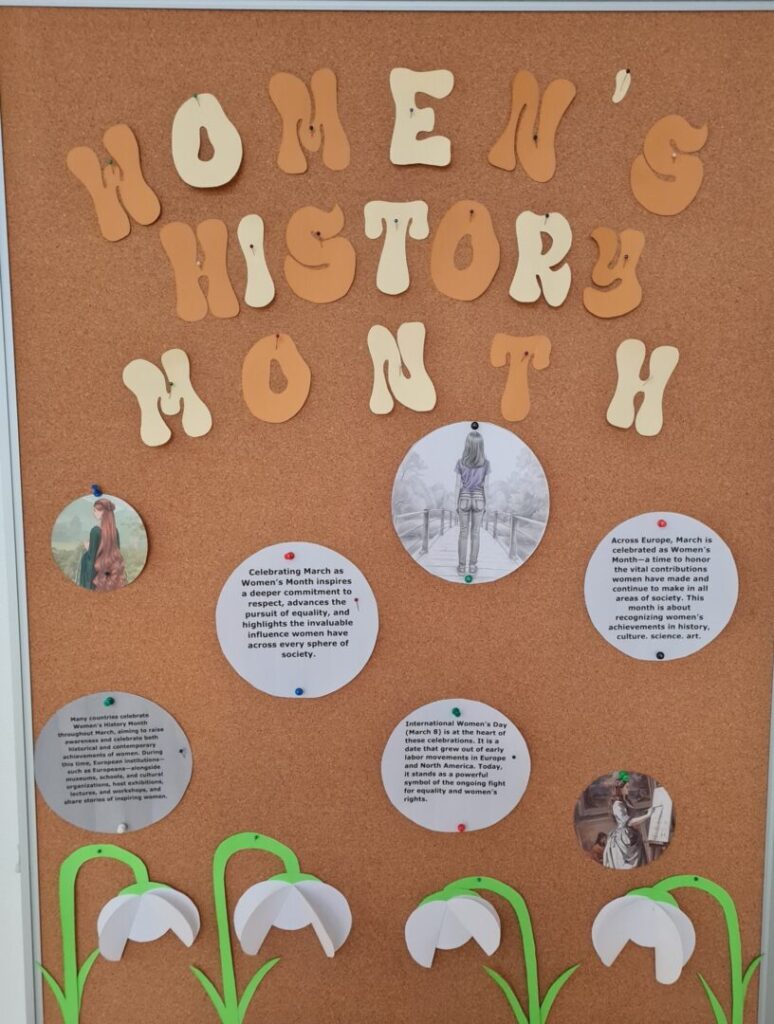 WOMEN'S
HISTORY
MONTH
Celebrating March as
Women's Month inspires
a deeper commitment to
respect, advances the
pursuit of equality, and
highlights the invaluable
influence women have
across every sphere of
society.
Across Europe, March is
celebrated as Women's
Month—a time to honor
the vital contributions
women have made and
continue to make in all
areas of society. This
month is about
recognizing women's
achievements in history,
culture. science. art.
Many countries celebrate
Women's History Month
throughout March, aiming to raise
awareness and celebrate both
historical and contemporary
achievements of women. During
this time, European institutions—
such as Europeana—alongside
museums, schools, and cultural
organizations, host exhibitions,
lectures, and workshops, and
share stories of inspiring women.
International Women's Day
(March 8) is at the heart of
these celebrations. It is a
date that grew out of early
labor movements in Europe
and North America. Today,
it stands as a powerful
symbol of the ongoing fight
for equality and women's
rights.